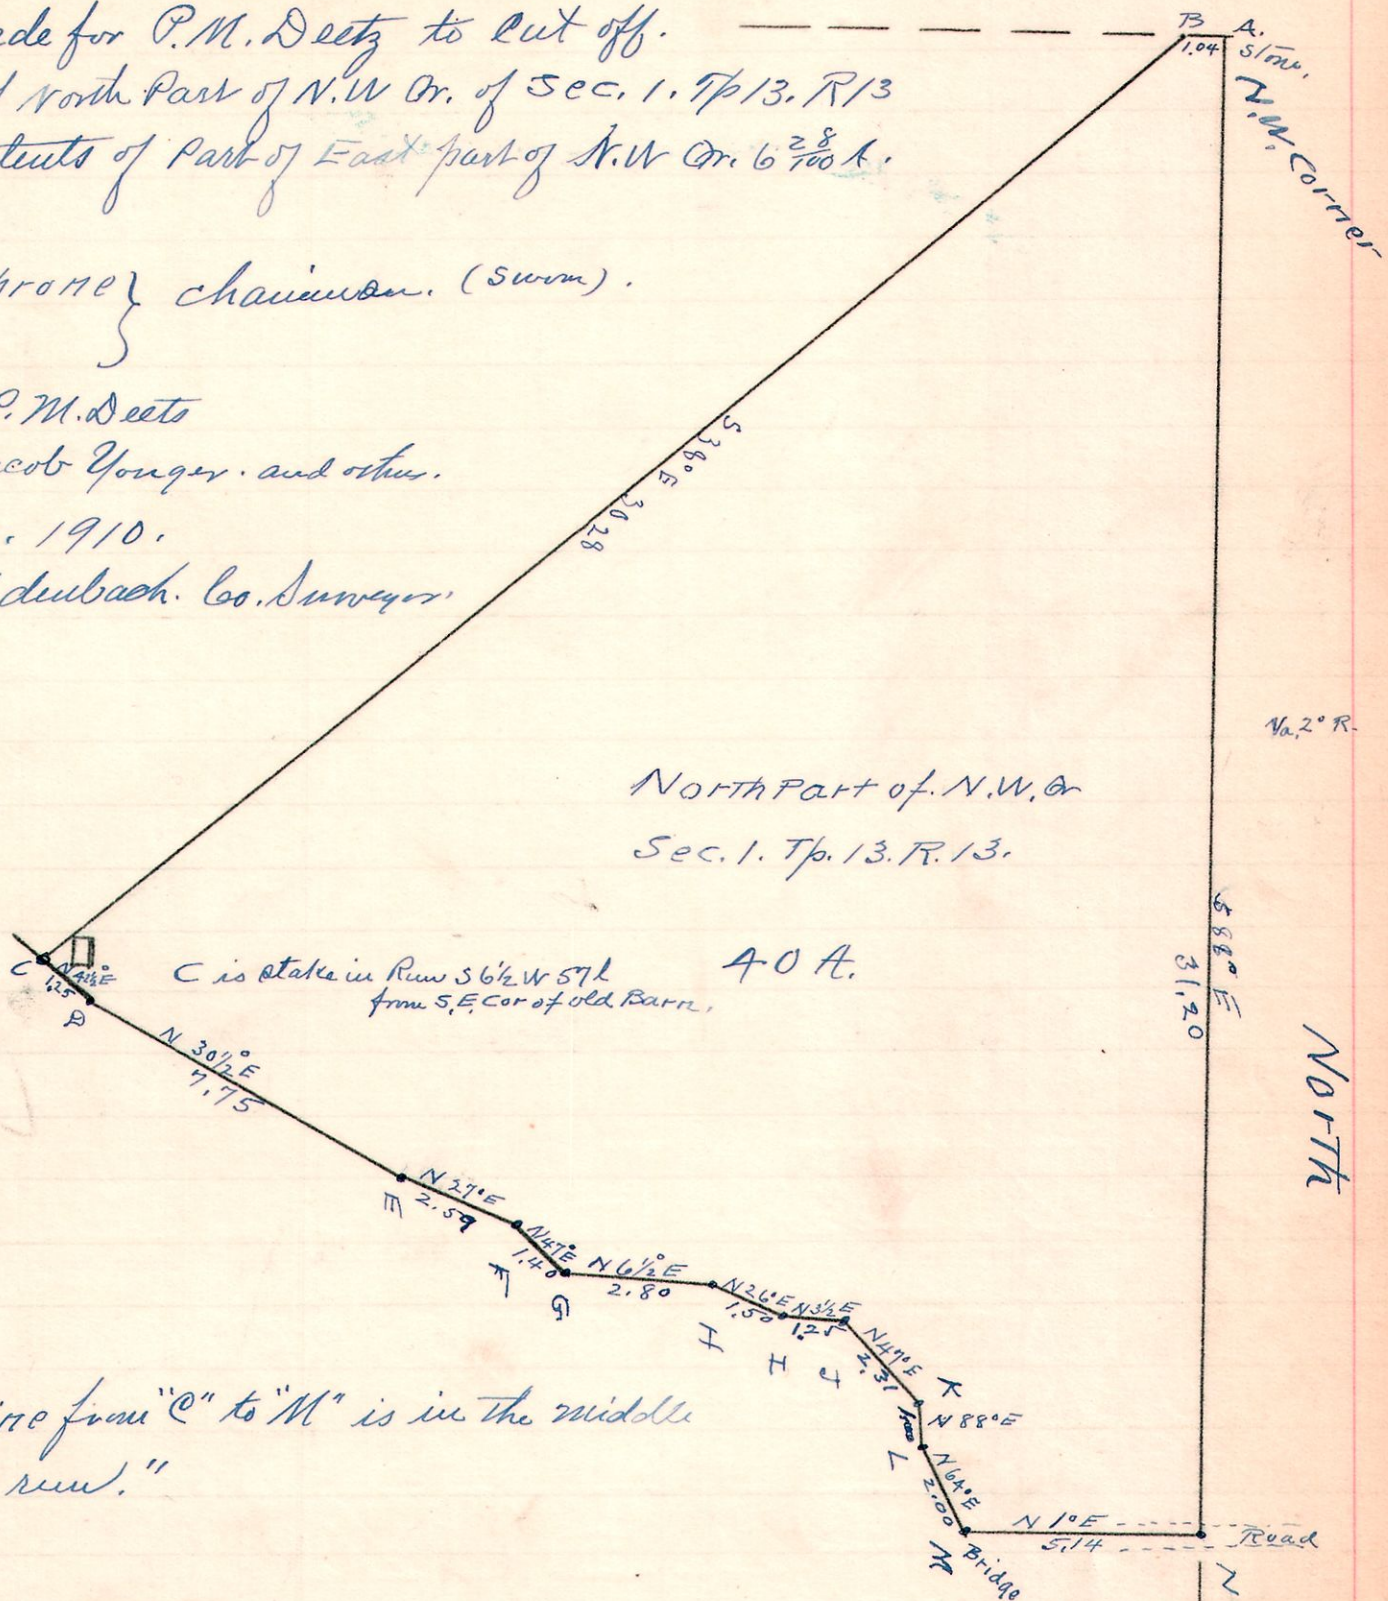 ede for P.M. Deetz to Cut off.
North Part of N.W Qr. of Sec. 1. Tp 13. R 13
tents of Part of East part of N.W Qr. 6 28/100 A.
hrone } chainman. (Sworn).
P. M. Deets
cob Yonger. and others.
. 1910.
denbach. Co. Surveyor.
B
A.
1.04
Stone.
N.W. Corner
S 38° E 30 28
Va. 2° R.
North Part of. N.W. Qr
Sec. 1. Tp. 13. R. 13.
40 A.
S 88° E
31.20
North
C
N 41½° E
1.25
D
C is stake in Run S 6½ W 57 l
from S.E. Cor of old Barn.
N 30½° E
7.75
E
N 27° E
2.59
F
N 47° E
1.40
G
N 6½° E
2.80
I
N 26° E
1.50
H
N 3½ E
1.25
J
N 47° E
2.31
K
N 88° E
L
N 64° E
2.00
M
Bridge
N 1° E
5.14
Road
N
ine from "C" to "M" is in the middle
run."